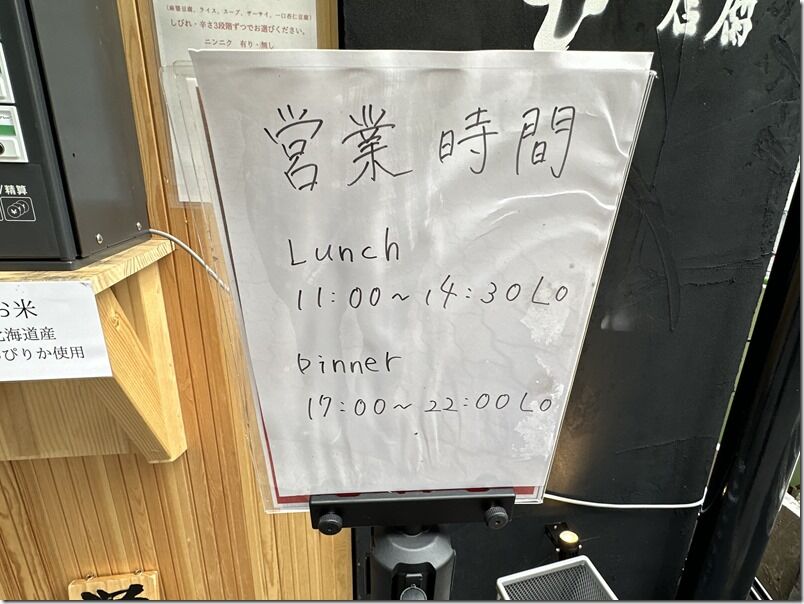 (麻婆豆腐、ライス、スープ、ザーサイ、一口杏仁豆腐)
しびれ・辛さ3段階ずつでお選びください。
ニンニク 有り・無し
豆腐
営業時間
Lunch
11:00~14:30 LO
Dinner
17:00~22:00 LO
/精算
お米
北海道産
ぴりか使用